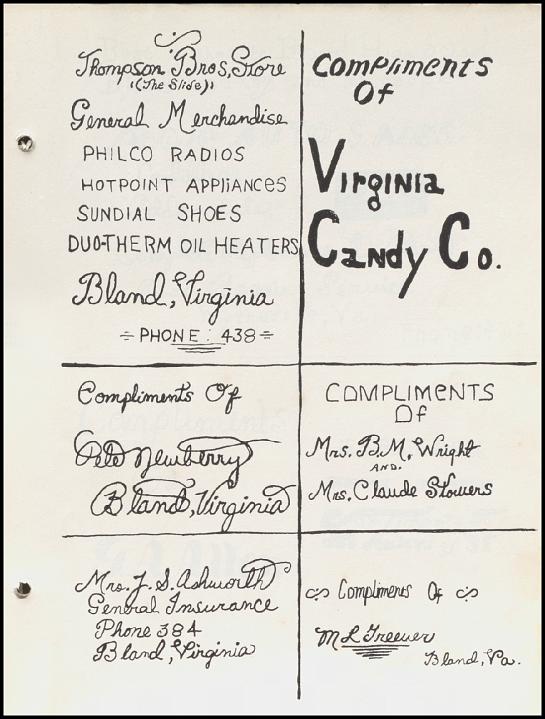 Thompson Bros. Store
"(The Slide)"
General Merchandise
PHILCO RADIOS
HOTPOINT APPLIANCES
SUNDIAL SHOES
DUO-THERM OIL HEATERS
Bland, Virginia
PHONE: 438
Compliments
Of
Virginia
Candy Co.
Compliments Of
Pete Newberry
Bland, Virginia
COMPLIMENTS
Of
Mrs. B.M. Wright
AND.
Mrs. Claude Stowers
Mrs. J. S. Ashworth
General Insurance
Phone 384
Bland, Virginia
Compliments Of
M L Greever
Bland, Va.